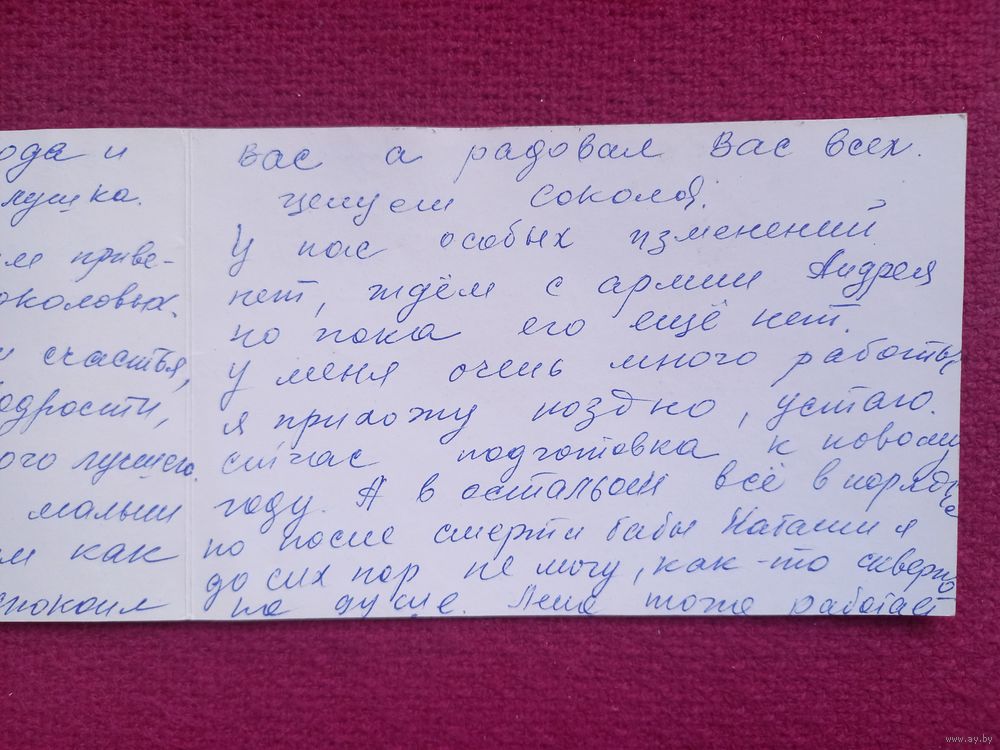 ода и
лушка.
м приве-
околовых.
и счастья,
одрости,
ого лучшего.
малыш
м как
спокоил
вас а радовал Вас всех.
целуем Соколов.
У нас особых изменений
нет, ждём с армии Андрея
но пока его ещё нет.
У меня очень много работы,
я прихожу поздно, устаю.
сейчас подготовка к новому
году. А в остальном всё в порядке
но после смерти бабы Наташи я
до сих пор не могу, как-то скверно
на душе. Лена тоже работает
www.ay.by